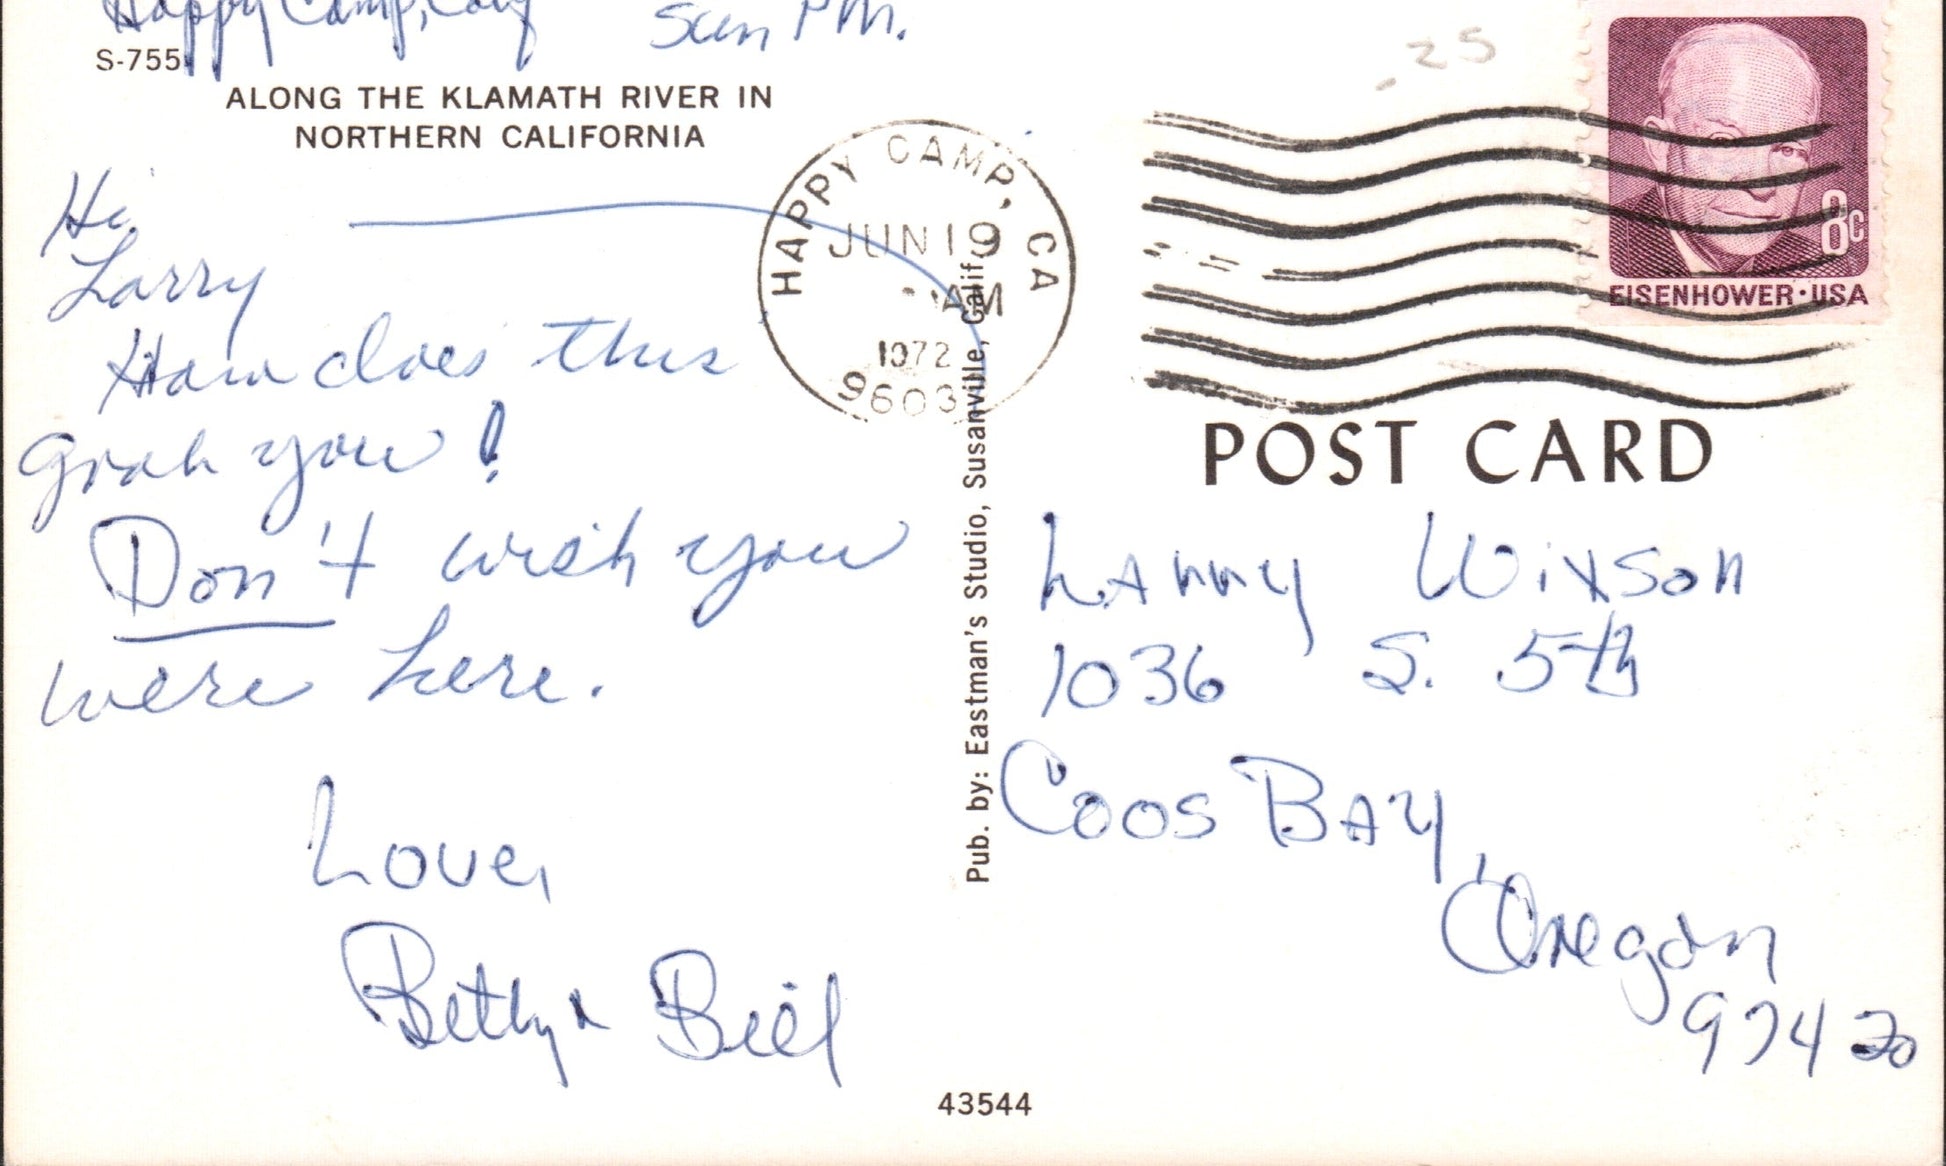 Happy Camp, Calif
Sun PM.
.25
S-755
ALONG THE KLAMATH RIVER IN
NORTHERN CALIFORNIA
HAPPY CAMP, CA
JUN 19
AM
1972
9603
8c
EISENHOWER · USA
Hi
Larry
How does this
grab you!
Don't wish you
were here.
Love,
Betty & Bill
Pub. by: Eastman's Studio, Susanville, Calif.
POST CARD
Larry Wixson
1036 S. 5th
Coos Bay,
Oregon
97420
43544